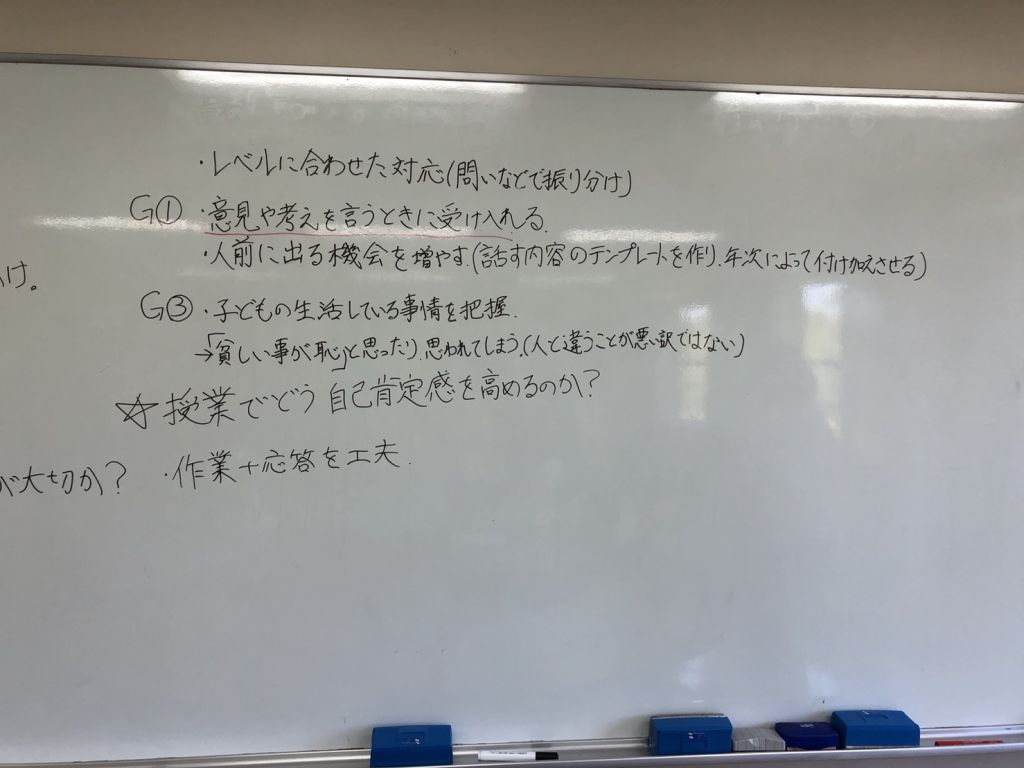 ・レベルに合わせた対応(問いなどで振り分け)
G① ・意見や考えを言うときに受け入れる.
・人前に出る機会を増やす.(話す内容のテンプレートを作り.年次によって付け加えさせる)
け。
G③ ・子どもの生活している事情を把握.
→「貧しい事が恥」と思ったり.思われてしまう.(人と違うことが悪い訳ではない)
☆授業でどう自己肯定感を高めるのか?
が大切か? ・作業+応答を工夫.